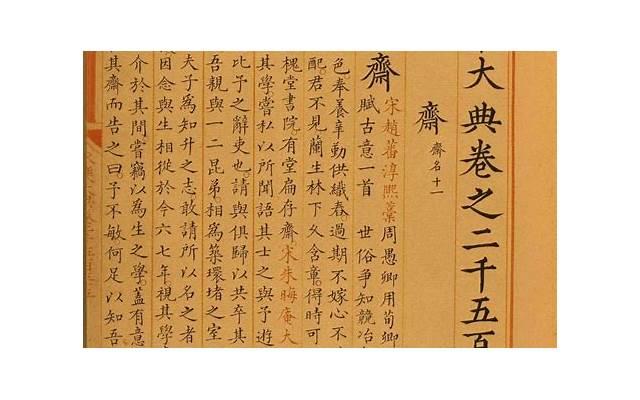 大典卷之二千五百
齋 齋名十一
齋
宋趙蕃淳熙稾 周愚卿用荀卿
賦古意一首 世俗爭知競冶
色奉養辛勤供織舂。過期不嫁心不
配。君不見蘭生林下久含章。得時可
槐堂書院。有堂扁存齋。宋朱晦庵大
其學。嘗私以所聞語其士之與予遊
比予之辭吏也。請與俱歸以共卒其
吾親與一二昆弟。相為築環堵之室
夫子為知升之志敢請所以名之者
因念與生相從於今六七年視其學
介於其間嘗竊以為生之學。蓋有意
其齋而告之曰予不敏何足以知吾